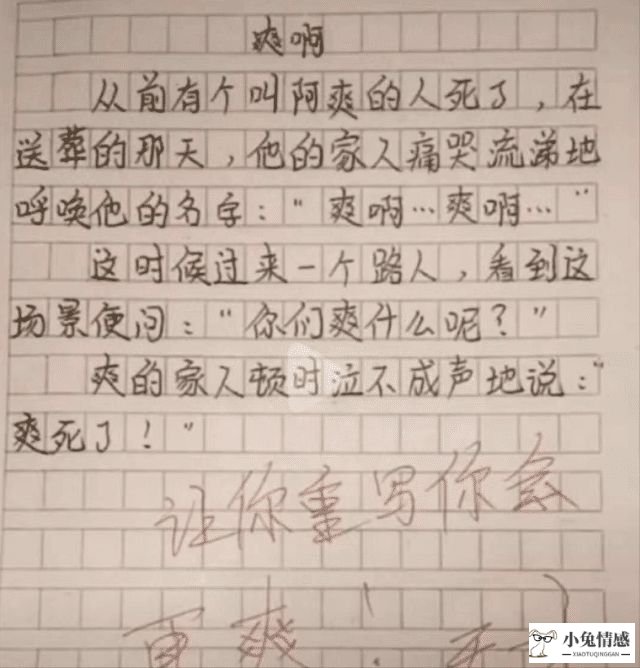 爽啊
从前有个叫阿爽的人死了，在
送葬的那天，他的家人痛哭流涕地
呼唤他的名字：“爽啊…爽啊…”
这时候过来一个路人，看到这
场景便问：“你们爽什么呢？”
爽的家人顿时泣不成声地说：“
爽死了！”
让你重写你会
更爽！
小兔情感
XIAOTUQINGGAN